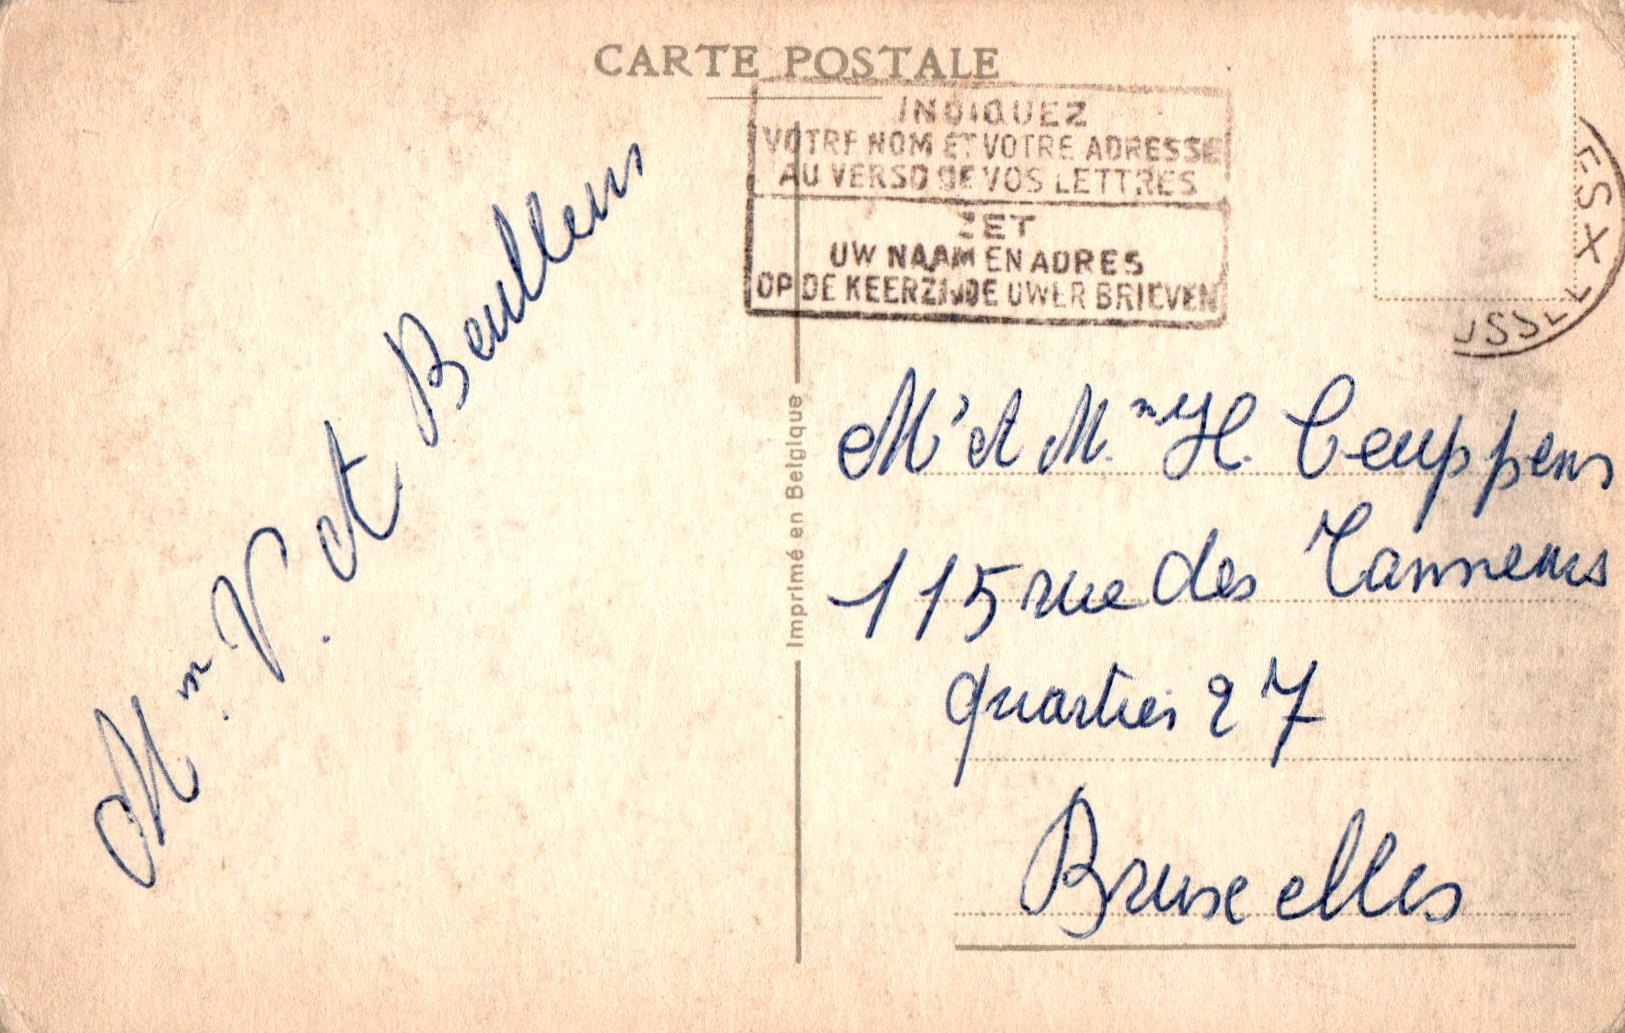 CARTE POSTALE
INDIQUEZ
VOTRE NOM ET VOTRE ADRESSE
AU VERSO DE VOS LETTRES
ZET
UW NAAM EN ADRES
OP DE KEERZIJDE UWER BRIEVEN
ES X
USSEL
Mm V. et Beullens
Imprimé en Belgique
Mr et Mm H. Ceuppens
115 rue des Tanneurs
quartier 27
Bruxelles